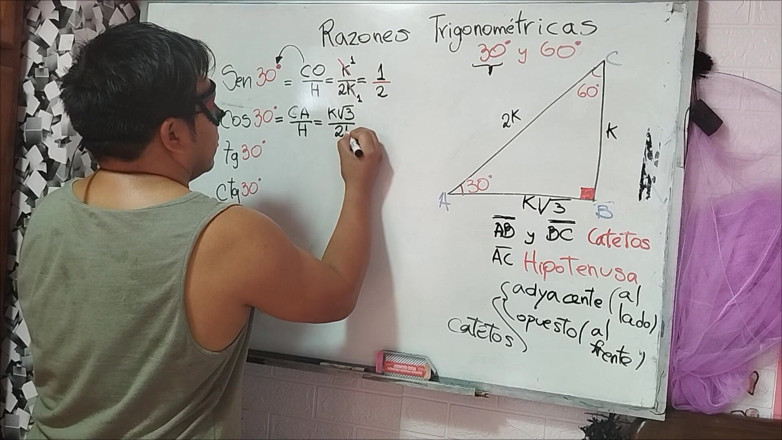 Razones Trigonométricas
30° y 60°
Sen 30° = CO/H = K/2K = 1/2
1
1
Cos 30° = CA/H = K√3/2
tg 30°
ctg 30°
C
60°
2K
K
30°
A
K√3
B
AB y BC Catetos
AC Hipotenusa
Catetos
adyacente (al lado)
opuesto (al frente)